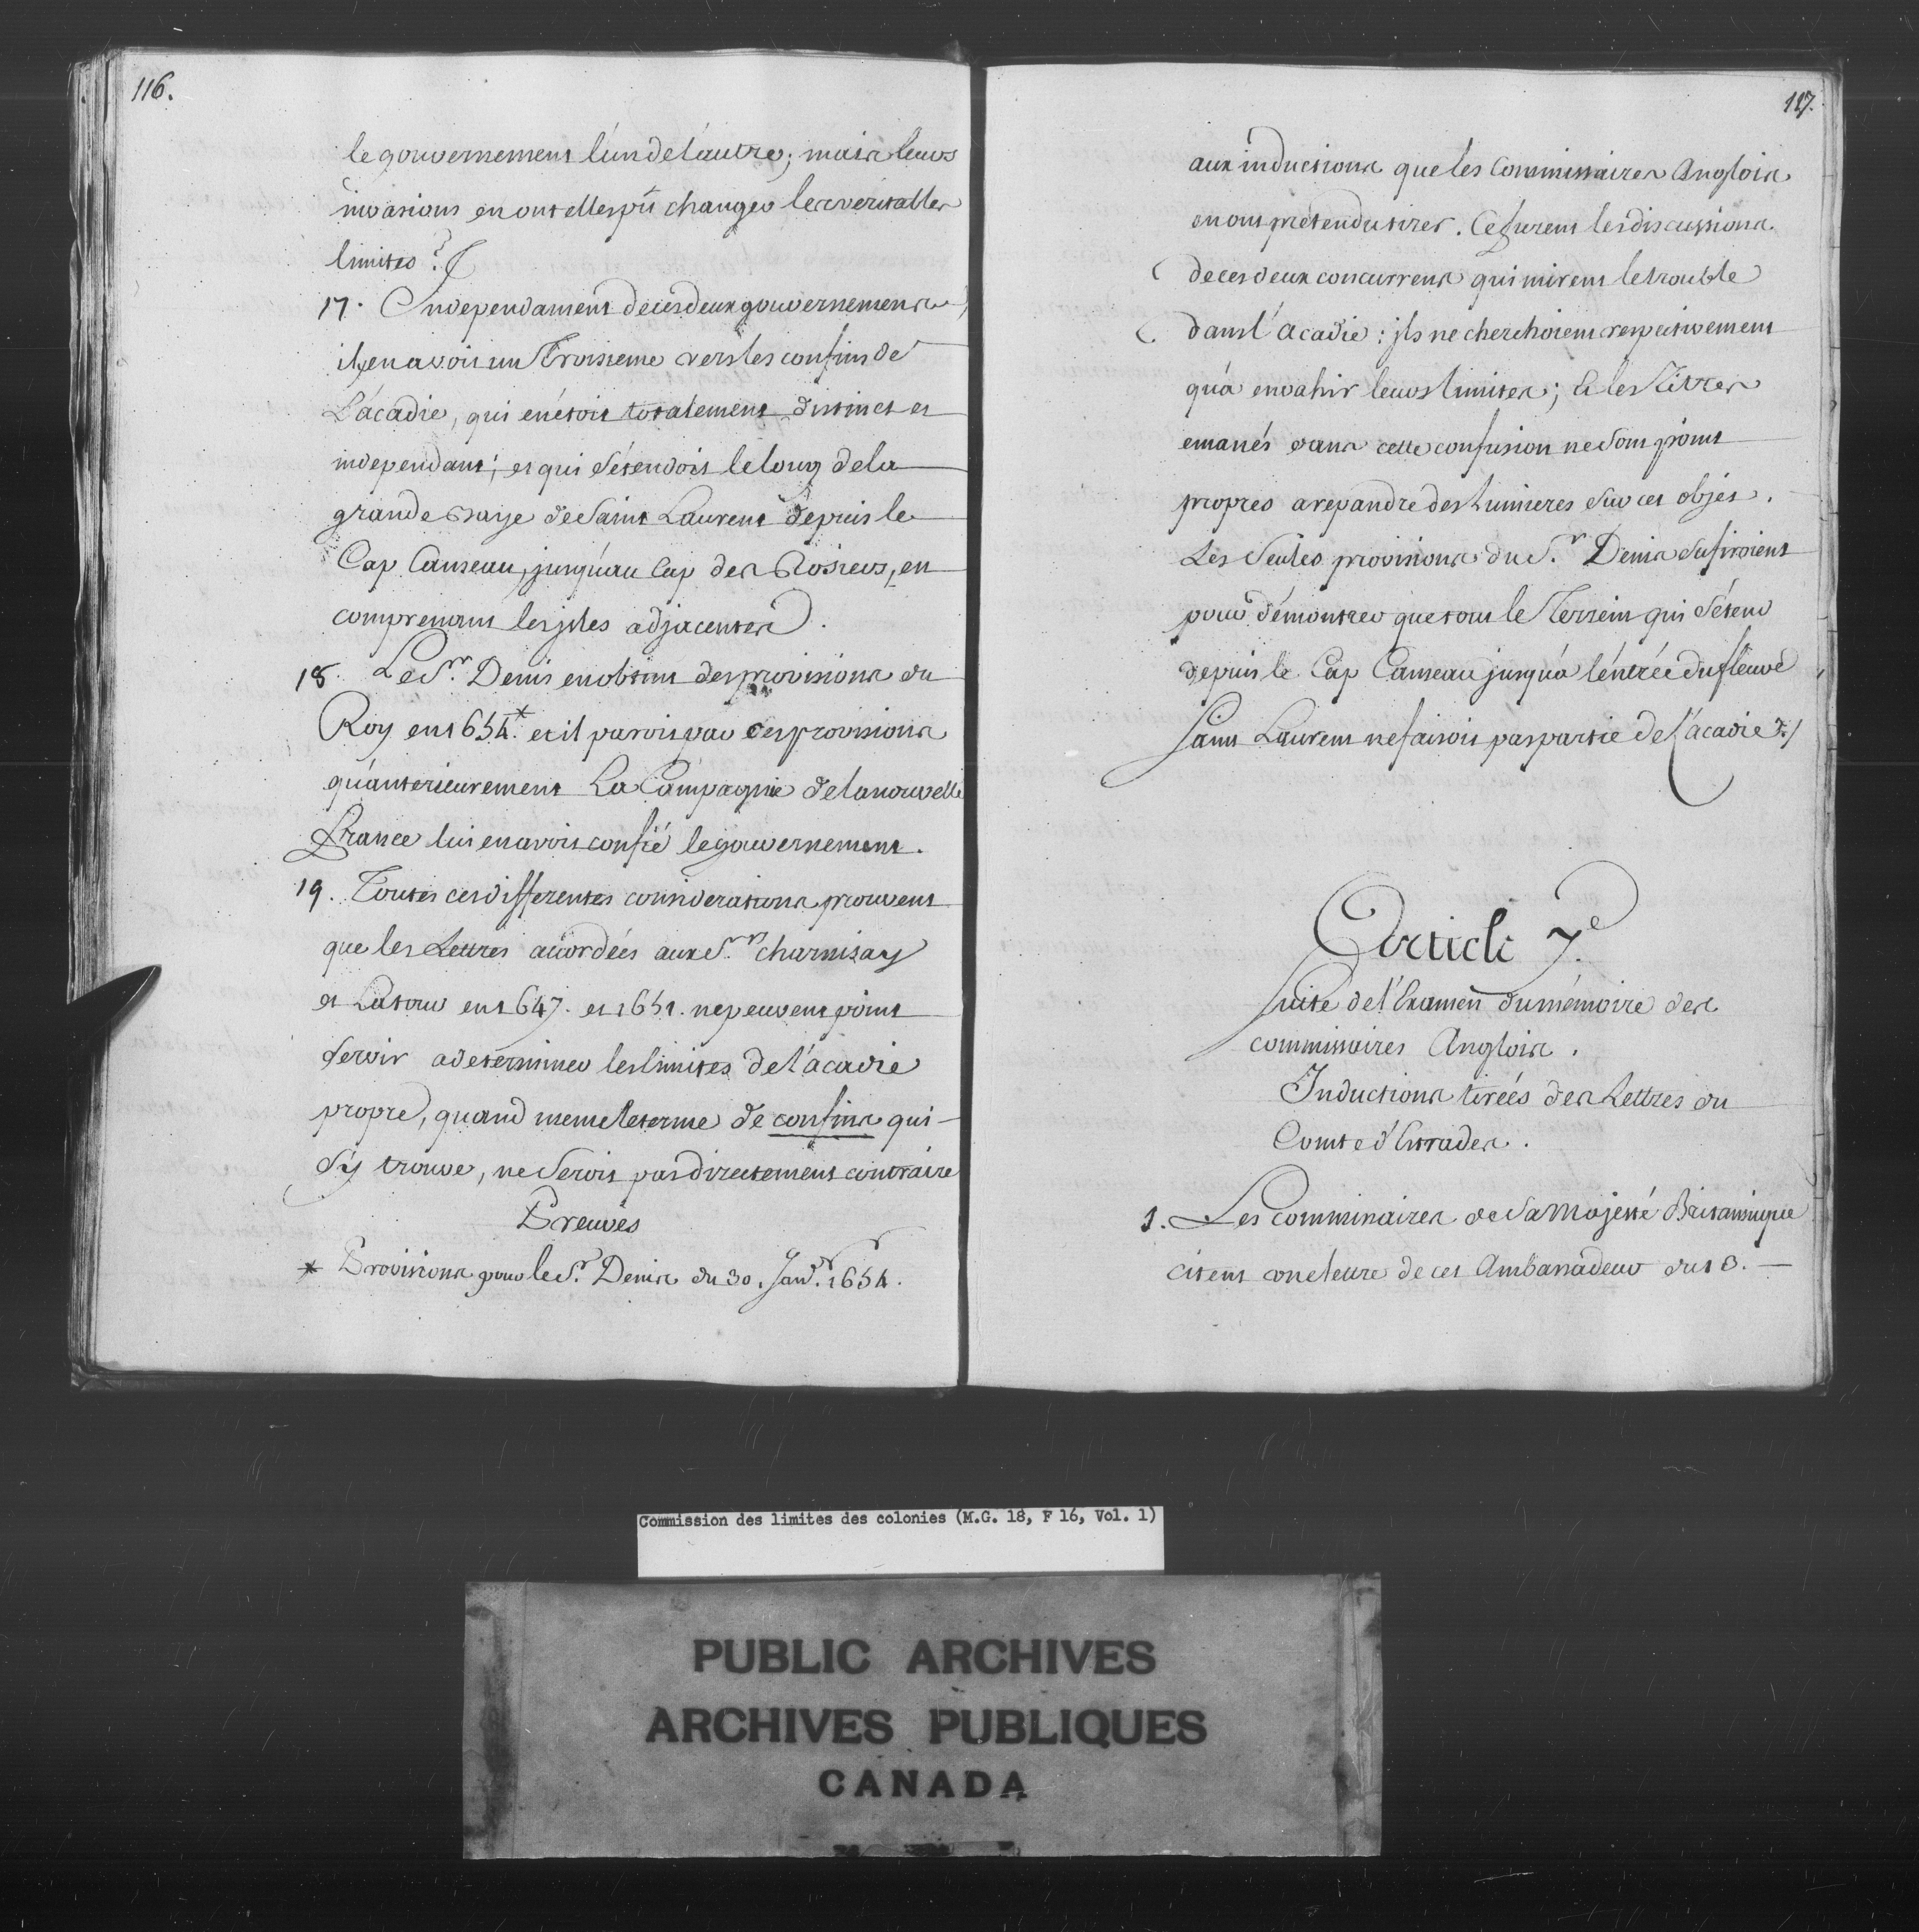 116.
le gouvernement l'un de l'autre; mais leurs
invasions en ont elles pû changer les veritables
limites?
17. Independament de ces deux gouvernemens,
il y en avoit un Troisieme vers les confins de
L'acadie, qui en étoit totalement distinct et
independant; et qui s'étendoit le long de la
grande Baye de Saint Laurent depuis le
Cap Canseau, jusqu'au Cap des Rosiers, en
comprenant les jsles adjacentes.
18. Le Sr. Denis en obtint des provisions du
Roy en 1654.* et il paroit par ces provisions
qu'anterieurement La Compagnie de la nouvelle
France lui en avoit confié le gouvernement.
19. Toutes ces differentes considerations prouvent
que les Lettres accordées aux Srs. Charnisay
et Latour en 1647. et 1651. ne peuvent point
servir a determiner les limites de l'acadie
propre, quand meme le terme de confins qui
s'y trouve, ne seroit pas directement contraire
Preuves
* Provisions pour le Sr. Denis du 30. Janvr. 1654.
117.
aux inductions que les Commissaires Anglois
en ont prétendu tirer. Ce furent les discussions
de ces deux concurrens qui mirent le trouble
dans l'acadie: jls ne cherchoient respectivement
qu'à envahir leurs limites; Et les Titres
emanés dans cette confusion ne sont point
propres a repandre des Lumieres sur cet objet.
Les Seules provisions du Sr. Denis sufiroient
pour démontrer que tout le Terrein qui s'étend
depuis le Cap Canseau jusqu'à l'entrée du fleuve
Saint Laurent ne faisoit pas partie de l'acadie ./
Article 7e.
Suite de l'Examen du mémoire des
commissaires Anglois.
Inductions tirées des Lettres du
Comte d'Estrades.
1. Les Commissaires de Sa Majesté Britannique
citent une lettre de cet Ambassadeur du 13.
Commission des limites des colonies (M.G. 18, F 16, Vol. 1)
PUBLIC ARCHIVES
ARCHIVES PUBLIQUES
CANADA